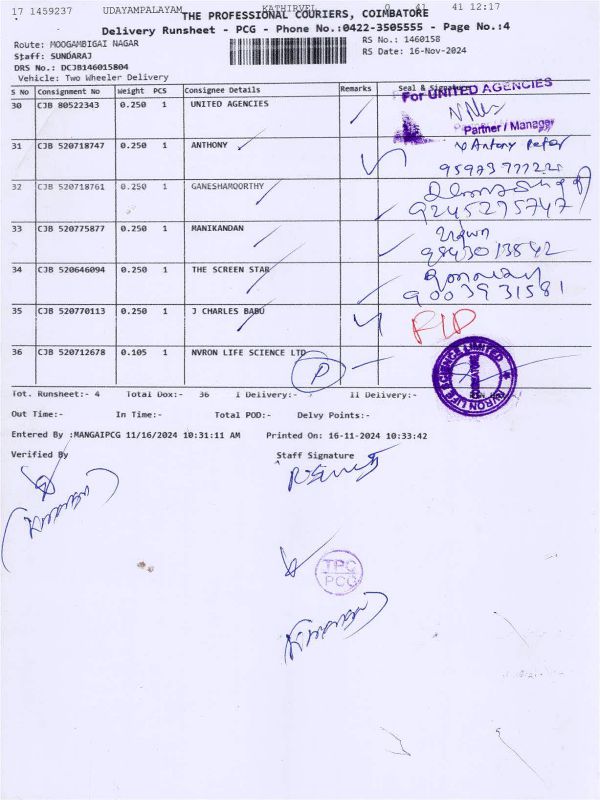 17 1459237 UDAYAMPALAYAM KATHIRVEL 0 41 41 12:17
THE PROFESSIONAL COURIERS, COIMBATORE
Delivery Runsheet - PCG - Phone No.:0422-3505555 - Page No.:4
Route: MOOGAMBIGAI NAGAR RS No.: 1460158
Staff: SUNDARAJ RS Date: 16-Nov-2024
DRS No.: DCJB146015804
Vehicle: Two Wheeler Delivery
S No Consignment No Weight PCS Consignee Details Remarks Seal & Signature
For UNITED AGENCIES
30 CJB 80522343 0.250 1 UNITED AGENCIES
Partner / Manager
31 CJB 520718747 0.250 1 ANTHONY Antony Peter
32 CJB 520718761 0.250 1 GANESHAMOORTHY
9245295747
33 CJB 520775877 0.250 1 MANIKANDAN
9843013542
34 CJB 520646094 0.250 1 THE SCREEN STAR
9003931581
35 CJB 520770113 0.250 1 J CHARLES BABU
36 CJB 520712678 0.105 1 NVRON LIFE SCIENCE LTD
P
NVRON LIFE SCIENCE LIMITED
Tot. Runsheet:- 4 Total Dox:- 36 I Delivery:- II Delivery:-
Out Time:- In Time:- Total POD:- Delvy Points:-
Entered By :MANGAIPCG 11/16/2024 10:31:11 AM Printed On: 16-11-2024 10:33:42
Verified By Staff Signature
TPC
PCG